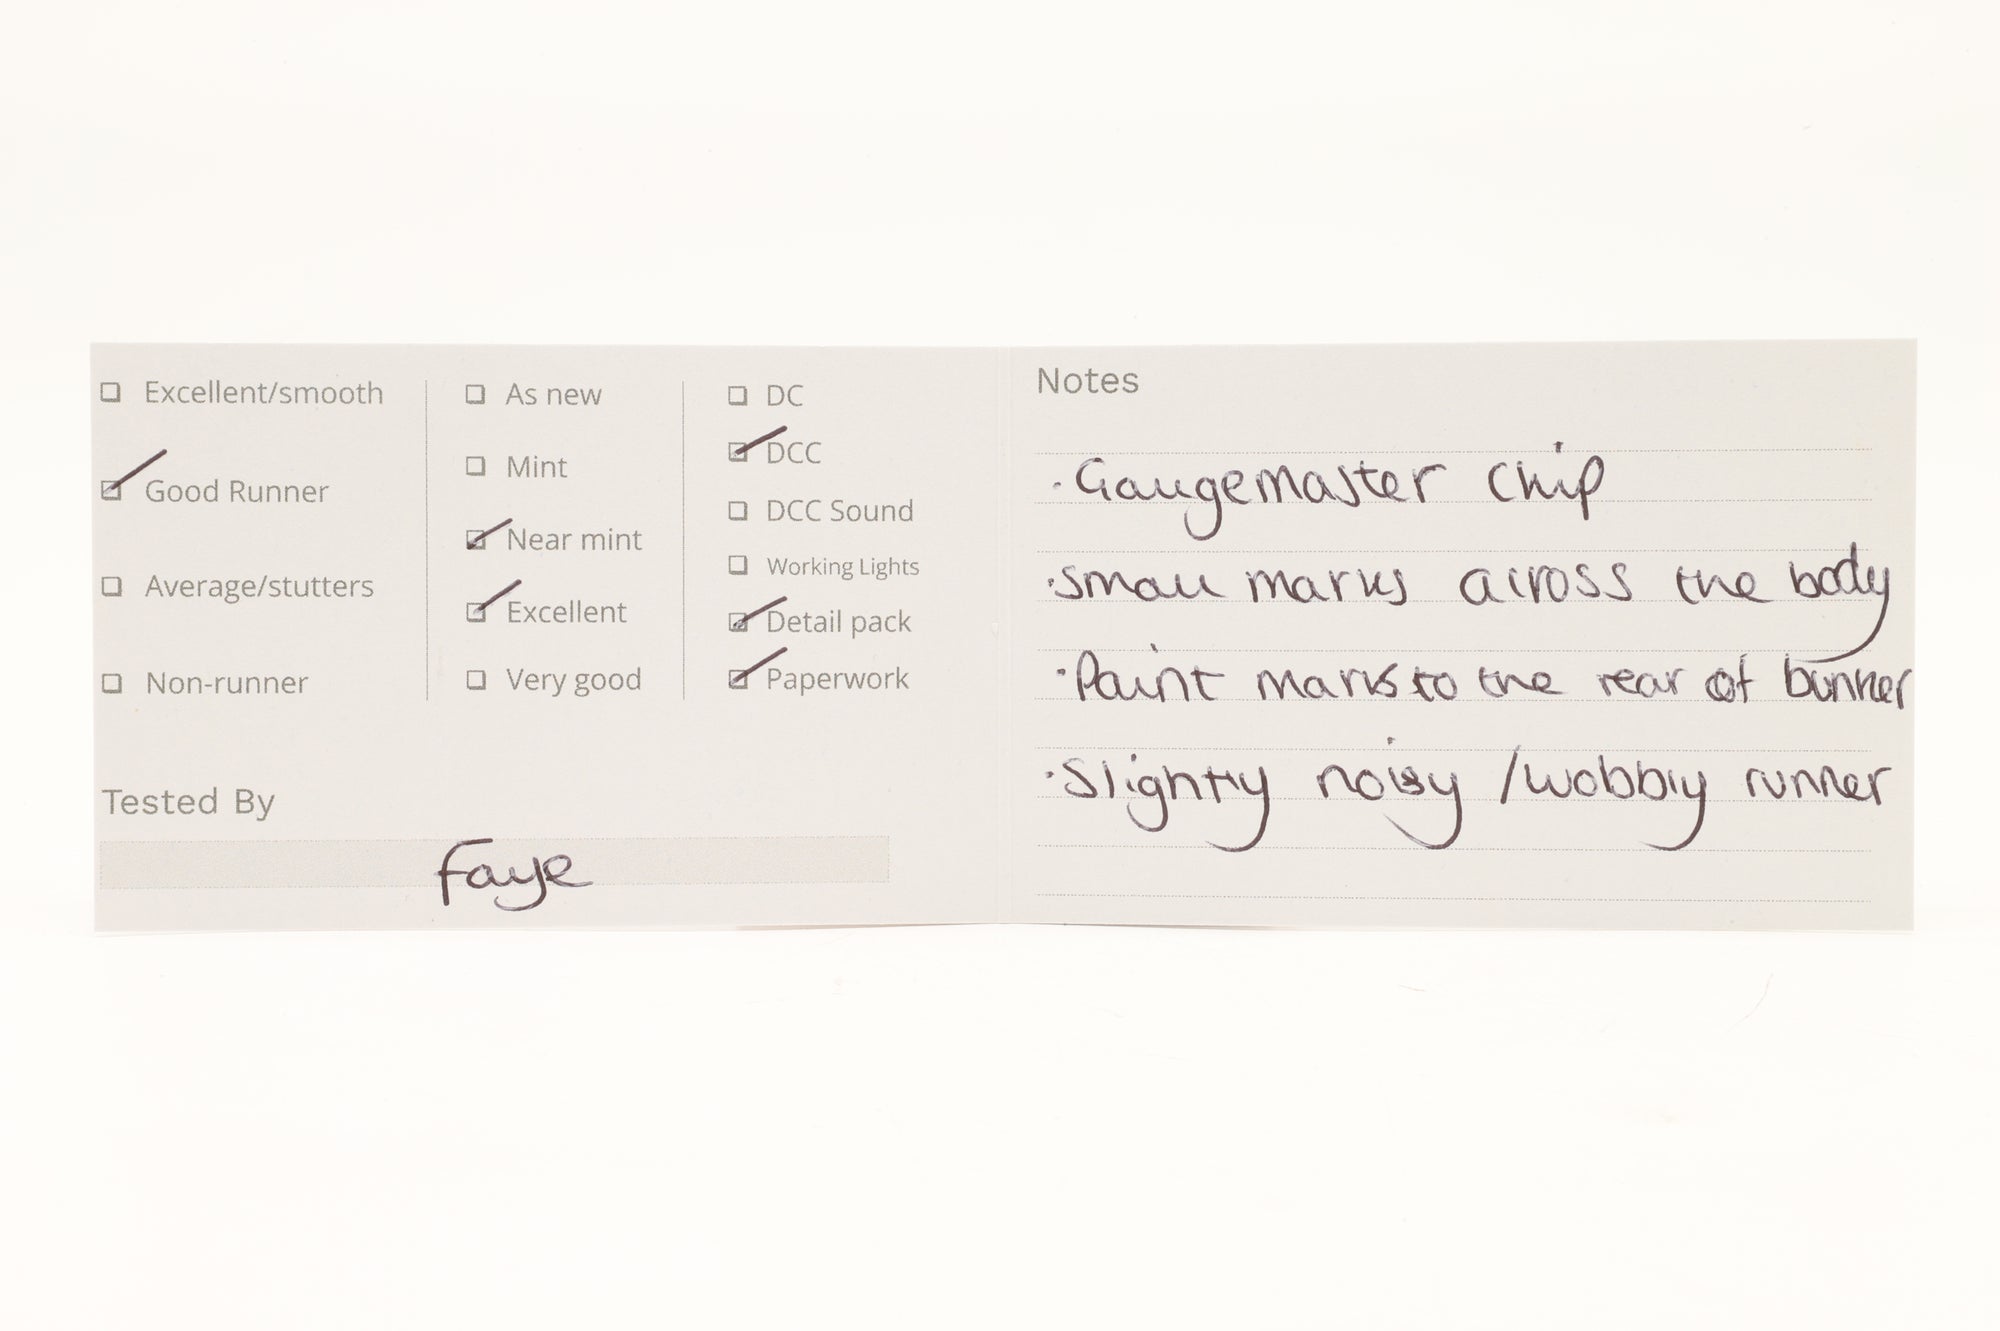 Excellent/smooth
Good Runner
Average/stutters
Non-runner
As new
Mint
Near mint
Excellent
Very good
DC
DCC
DCC Sound
Working Lights
Detail pack
Paperwork
Tested By
Faye
Notes
· Gaugemaster chip
· small marks across the body
· Paint marks to the rear of bunner
· Slightly noisy / wobbly runner